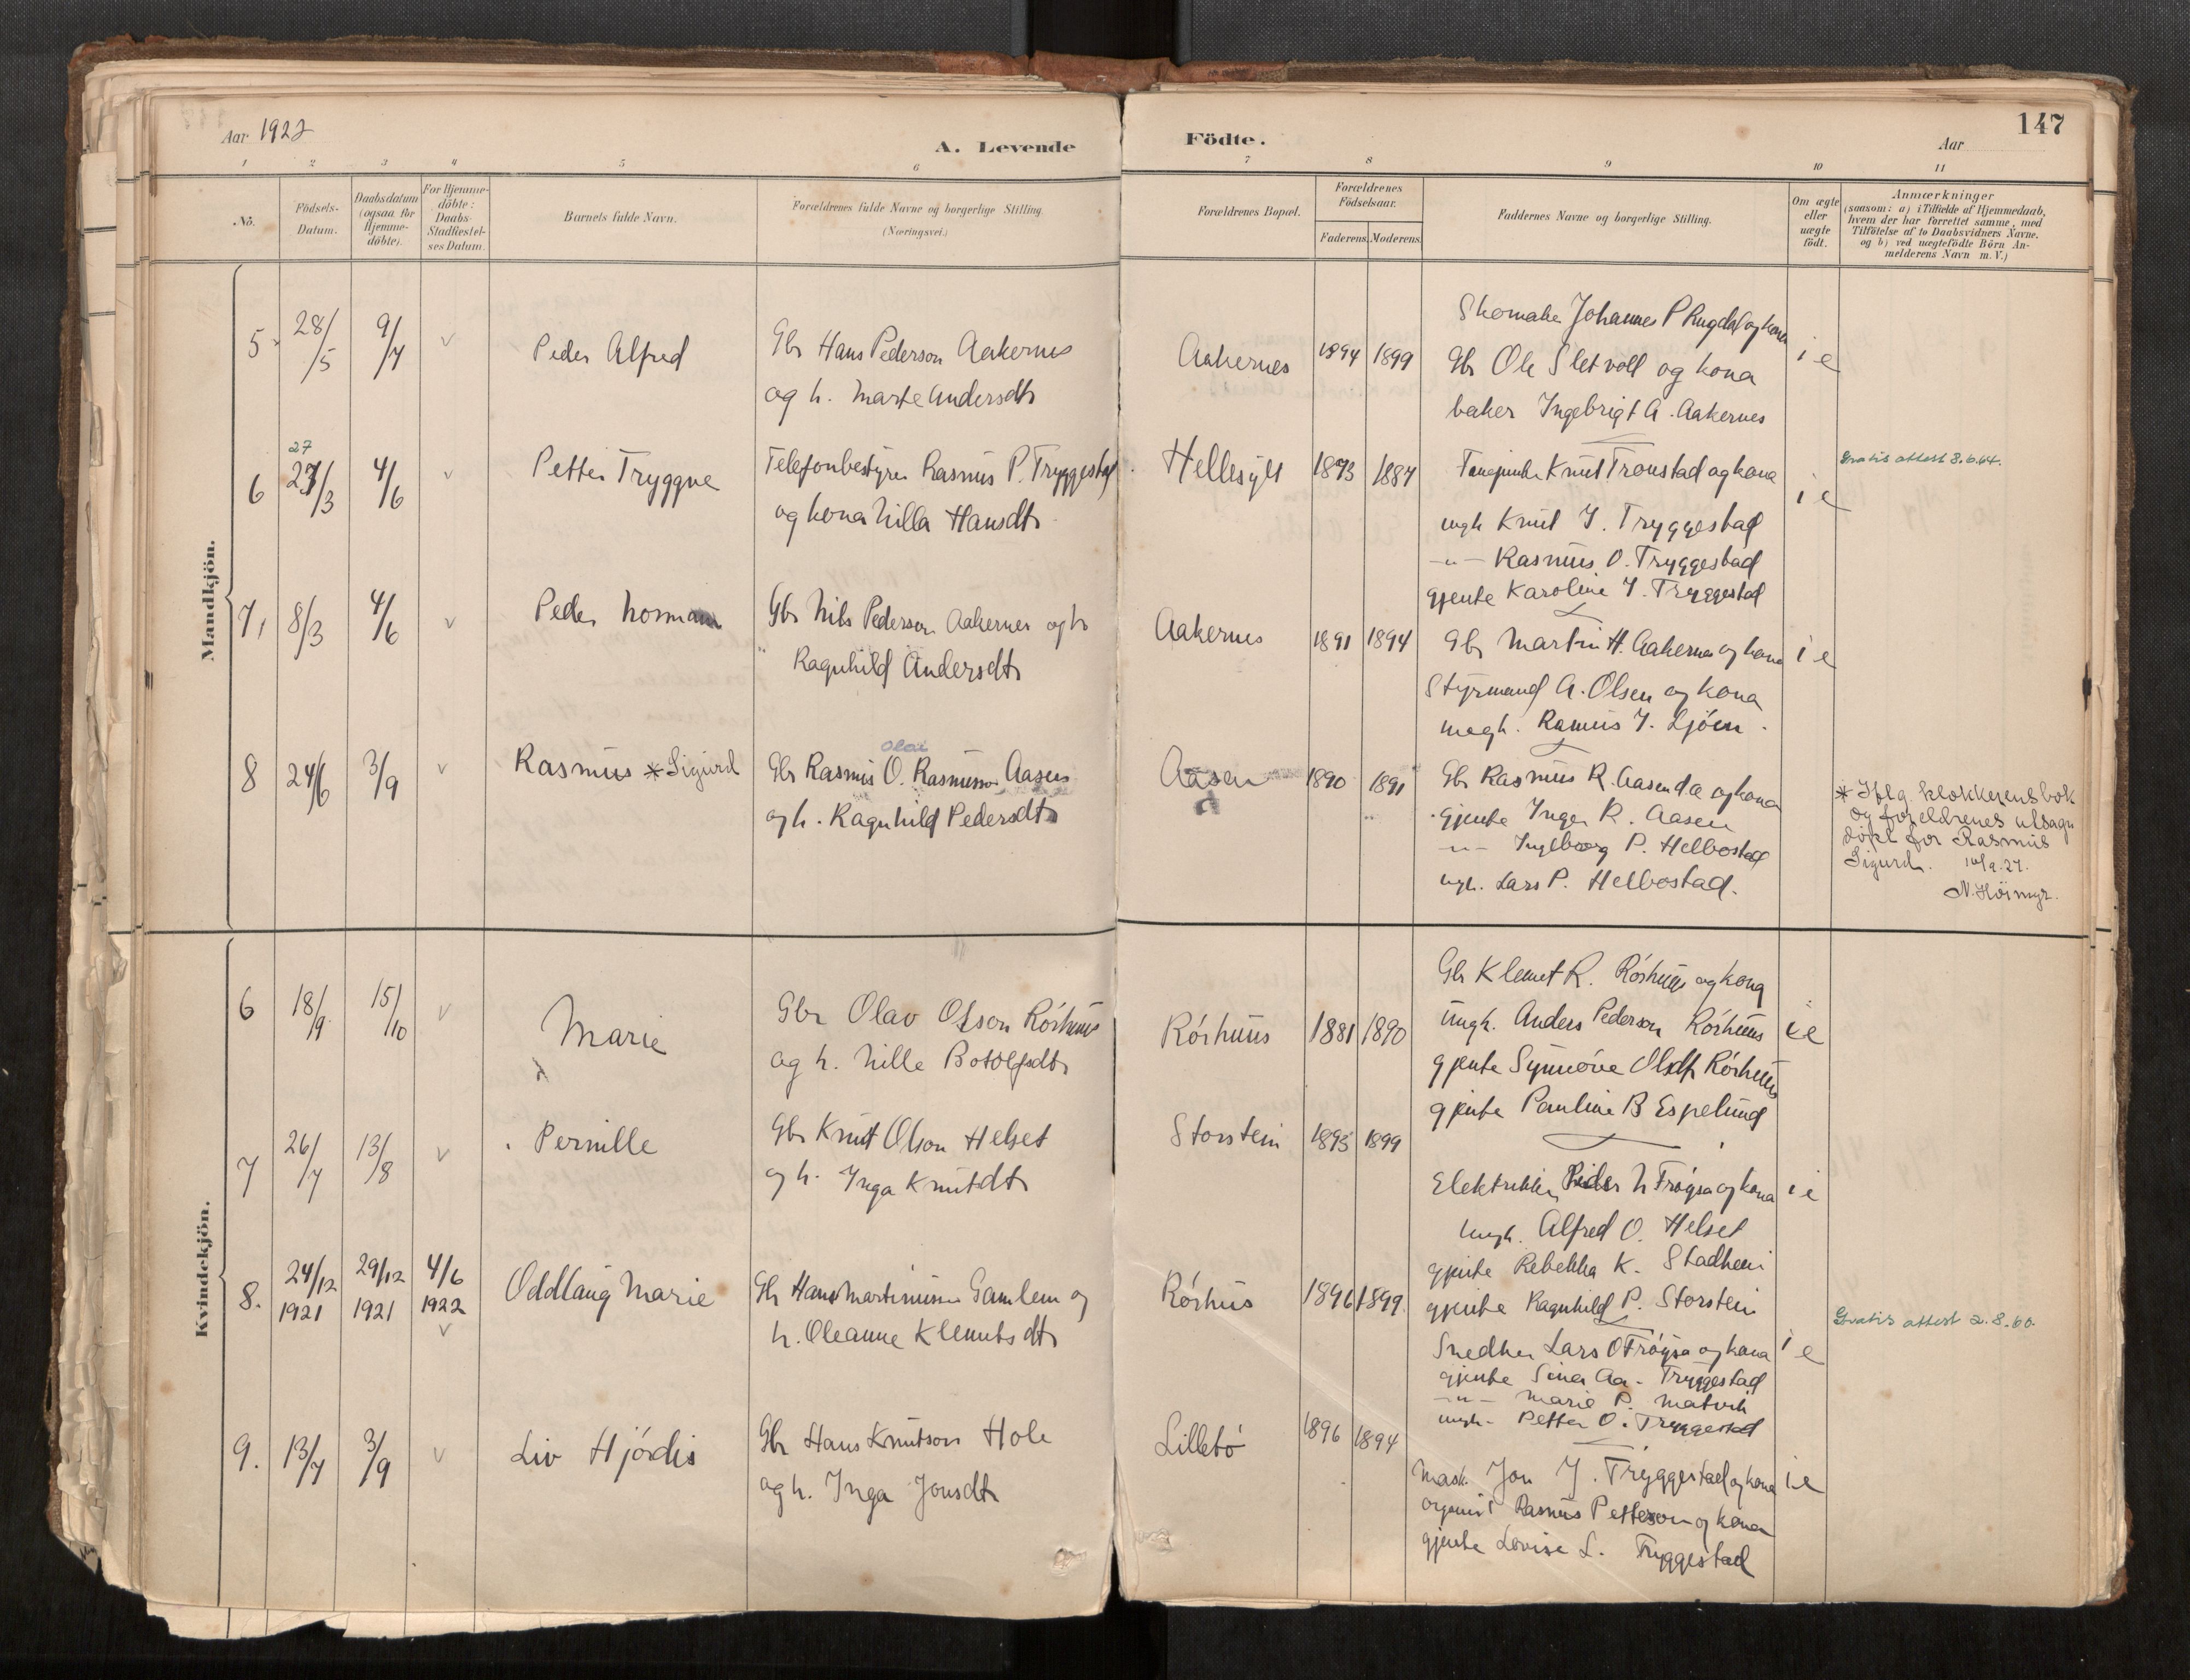 Aar 1922
A. Levende
1 2 3 4 5 6
Nö.
Födsels-
Datum.
Daabsdatum
(ogsaa for
Hjemme-
döbte).
For Hjemme-
döbte:
Daabs-
Stadfæstel-
ses Datum.
Barnets fulde Navn.
Forældrenes fulde Navne og borgerlige Stilling.
(Næringsvei.)
Mandkjön.
5 28/5 9/7 v Peder Alfred
Gbr Hans Pederson Aakernes
og h. Marte Andersdtr
27
6 27/3 4/6 v Petter Tryggve
Telefonbestyrer Rasmus P. Tryggestad
og kona Nilla Hansdtr
7, 8/3 4/6 v Peder Norman
Gbr Nils Pederson Aakernes og h
Ragnhild Andersdtr
Olai
8 24/6 3/9 v Rasmus * Sigurd
Gbr Rasmus O. Rasmusson Aasen
og h. Ragnhild Pedersdtr
Kvindekjön.
6 18/9 15/10 v Marie
Gbr Olav Olson Rörhuus
og h. Nille Botolfsdtr
7 26/7 13/8 v Pernille
Gbr Knut Olson Helset
og h. Inga Knutdtr
8. 24/12 1921 29/12 1921 4/6 1922 v Oddlaug Marie
Gbr Hans Martinusson Gamlem og
h. Oleanne Klemetsdtr
9. 13/7 3/9 v Liv Hjördis
Gbr Hans Knutson Hole
og h. Inga Jonsdtr
Födte.
Aar
147
7 8 9 10 11
Forældrenes Bopæl.
Forældrenes
Födselsaar.
Faderens. Moderens.
Faddernes Navne og borgerlige Stilling.
Om ægte
eller
uægte
födt.
Anmærkninger
(saasom: a) i Tilfælde af Hjemmedaab,
hvem der har forrettet samme, med
Tilföielse af to Daabsvidners Navne.
og b) ved uægtefödte Börn An-
melderens Navn m. V.)
Skomaker Johannes P Rugdal og kona
Aakernes 1894 1899 Gbr Ole Sletvoll og kona i e
baker Ingebrigt A. Aakernes
Hellesylt 1873 1887 Knut Tronstad og kona i e
Gratis attest 3.6.64.
ungk Knut J. Tryggestad
-"- Rasmus O. Tryggestad
gjente Karoline J. Tryggestad
Aakernes 1891 1894 Gbr Martin H. Aakernes og kona i e
Styrmand A. Olsen og kona
ungk. Rasmus J. Ljöen
Aasen 1890 1891 Gbr Rasmus R. Aasen d.e og kona
gjente Inger R. Aasen
-"- Ingeborg P. Helbostad
ungk. Lars P. Helbostad.
* Iflg. klokkerens bok
og foreldrenes utsagn
döpt for Rasmus
Sigurd. 10/9.27.
N. Höimyr.
Gbr Klemet R. Rörhuus og kona
Rörhuus 1881 1890 ungk. Anders Pederson Rörhuus i e
gjente Synnöve Olsdtr Rörhuus
gjente Pauline B Espelund
Storstein 1895 1899
Elektriker Peder N Fröysa og kona i e
ungk. Alfred O. Helset
gjente Rebekka K. Stadheim
gjente Ragnhild P. Storstein
Rörhus 1896 1899.
Gratis attest 2.8.60.
Snedker Lars O Fröysa og kona i e
gjente Sina Aa. Tryggestad
-"- Marie P. Matvik
ungk. Petter O. Tryggestad
Lillebö 1896 1894
Mask. Jon J. Tryggestad og kona i e
organist Rasmus Petterson og kona
gjente Lovise L. Tryggestad